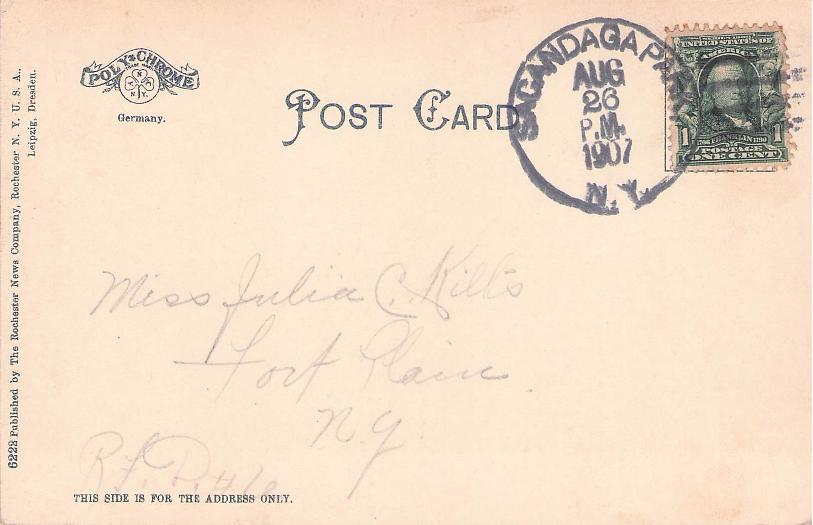 POLY-CHROME
TRADE MARK
N
N. Y.
Germany.
POST CARD
SACANDAGA PARK
AUG
26
P.M.
1907
N. Y.
UNITED STATES OF
AMERICA
1 FRANKLIN 1
POSTAGE
ONE CENT
6222 Published by The Rochester News Company, Rochester N. Y. U. S. A.,
Leipzig, Dresden.
Miss Julia C. Kilts
Fort Plain
N.Y.
R.F.D. #
THIS SIDE IS FOR THE ADDRESS ONLY.